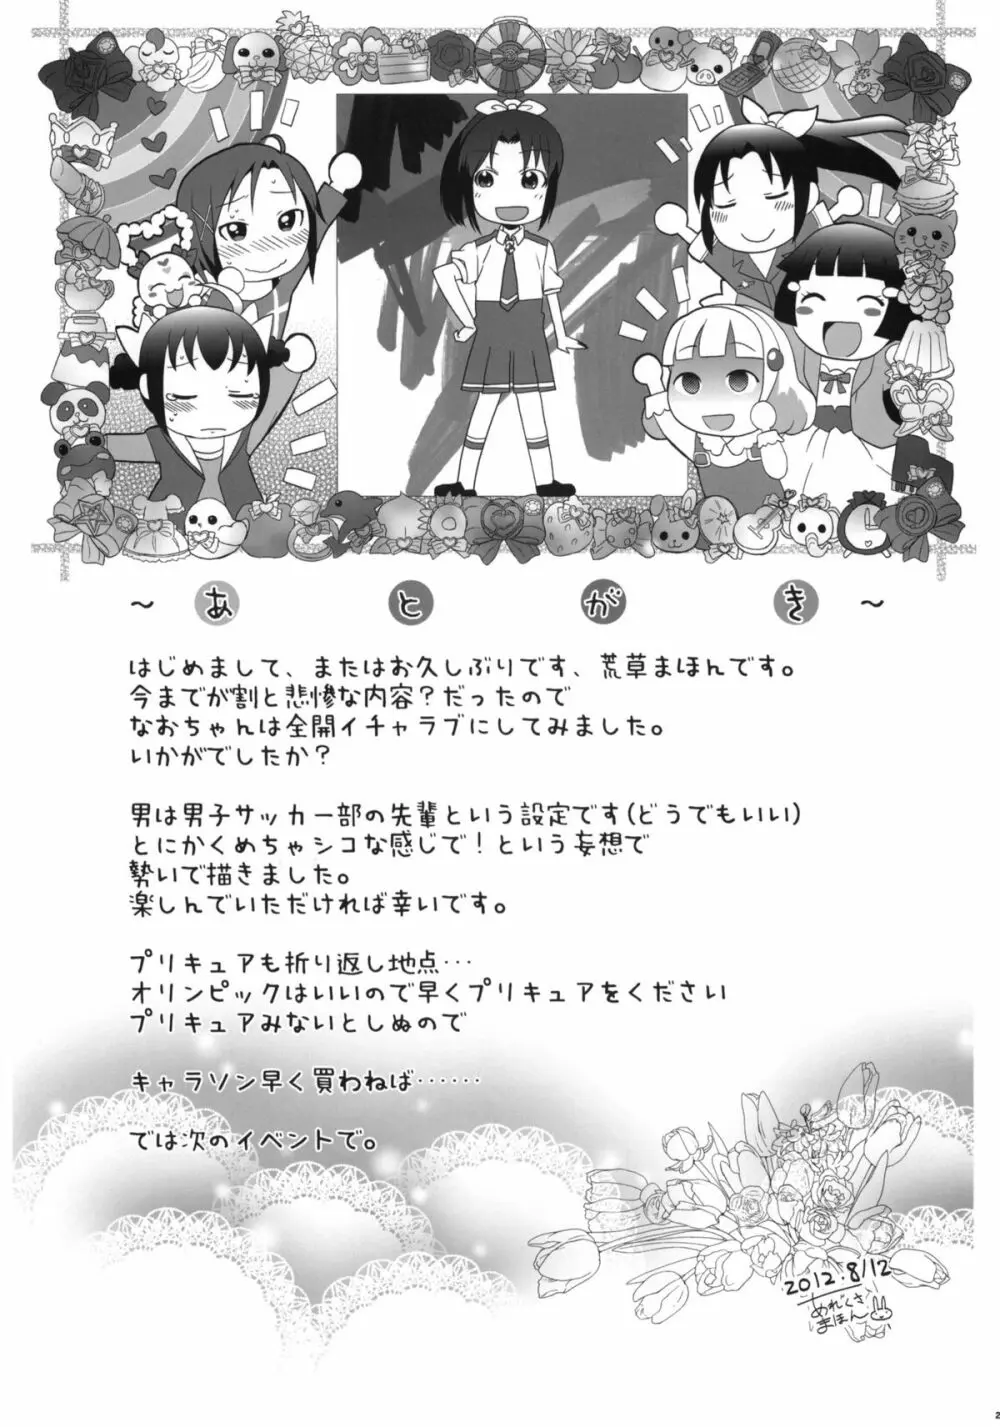 ～ あとがき ～
はじめまして、またはお久しぶりです、荒草まほんです。
今までが割と悲惨な内容？だったので
なおちゃんは全開イチャラブにしてみました。
いかがでしたか？
男は男子サッカー部の先輩という設定です(どうでもいい)
とにかくめちゃシコな感じで！という妄想で
勢いで描きました。
楽しんでいただければ幸いです。
プリキュアも折り返し地点…
オリンピックはいいので早くプリキュアをください
プリキュアみないとしぬので
キャラソン早く買わねば……
では次のイベントで。
2012.8/12
あれくさ
まほん
2